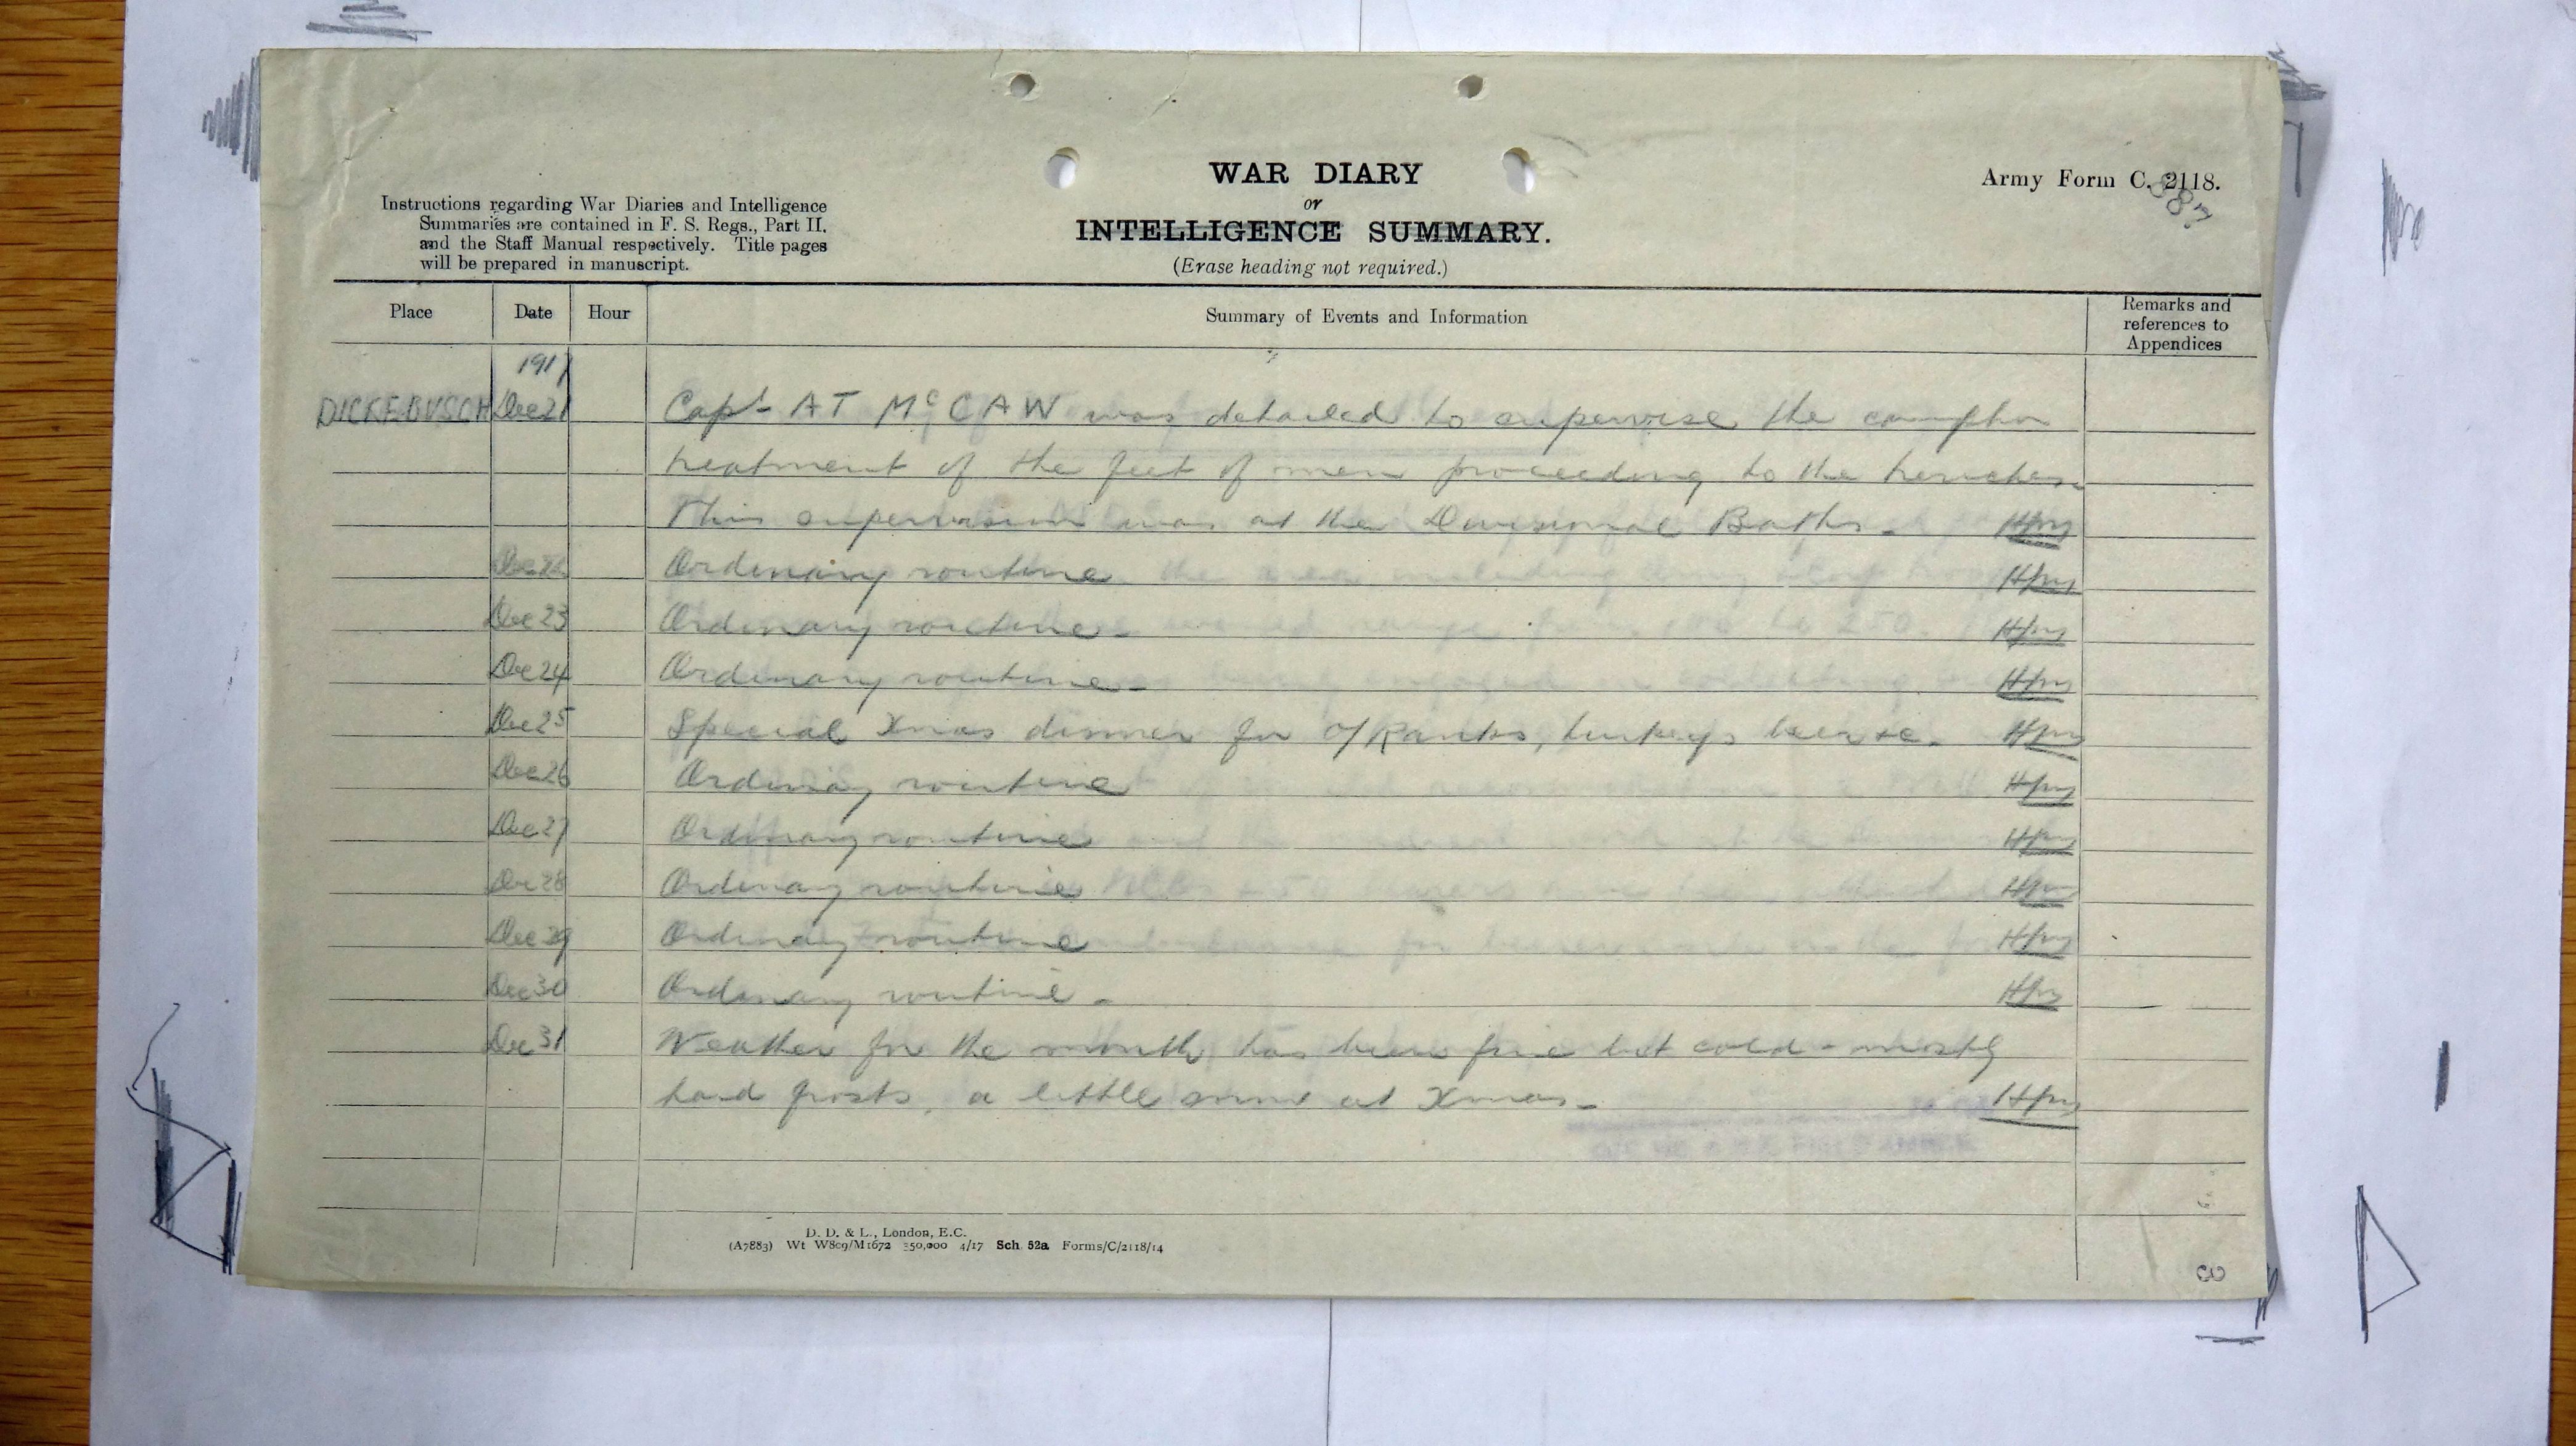 WAR DIARY
or
INTELLIGENCE SUMMARY.
(Erase heading not required.)
Army Form C. 2118.
Instructions regarding War Diaries and Intelligence
Summaries are contained in F. S. Regs., Part II.
and the Staff Manual respectively. Title pages
will be prepared in manuscript.
Place Date Hour Summary of Events and Information Remarks and references to Appendices
1917
DICKEBUSCH Dec 21 Capt AT McCAW was detailed to supervise the camphor
treatment of the feet of men proceeding to the trenches.
This supervision was at the Divisional Baths.
Dec 22 Ordinary routine
Dec 23 Ordinary routine.
Dec 24 Ordinary routine.
Dec 25 Special Xmas dinner for O/Ranks, turkeys beer &c.
Dec 26 Ordinary routine
Dec 27 Ordinary routine
Dec 28 Ordinary routine
Dec 29 Ordinary routine
Dec 30 Ordinary routine.
Dec 31 Weather for the month has been fine but cold - mostly
hard frosts, a little snow at Xmas.
D. D. & L., London, E.C.
(A7883) Wt W809/M1672 350,000 4/17 Sch. 52a Forms/C/2118/14